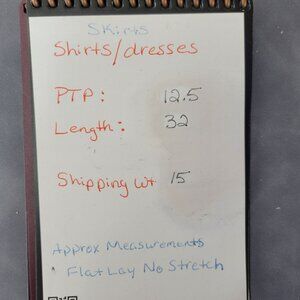 Skirts
Shirts/dresses
PTP: 12.5
Length: 32
Shipping wt 15
Approx Measurements
Flat Lay No Stretch